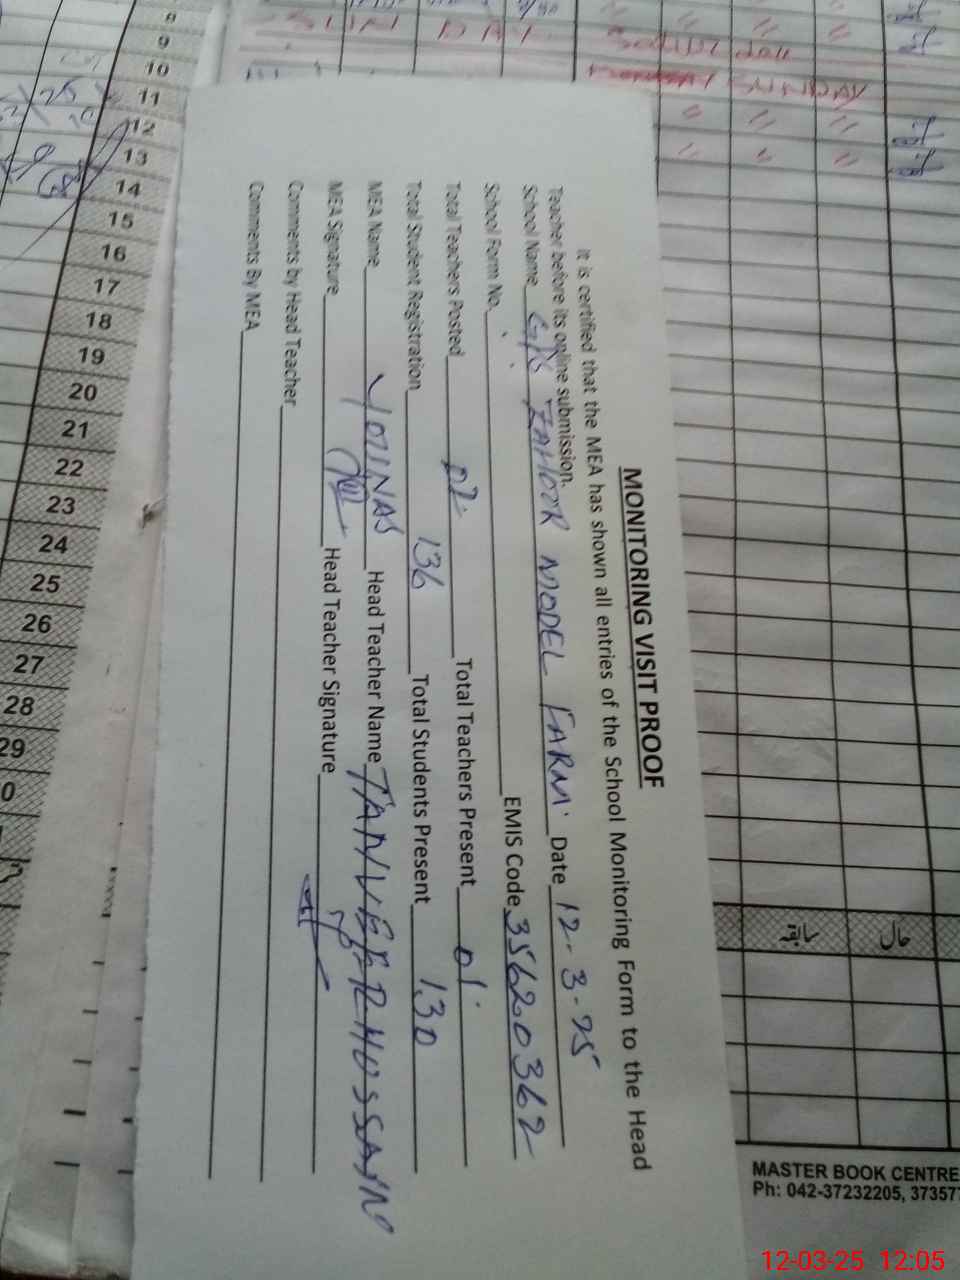 MONITORING VISIT PROOF
It is certified that the MEA has shown all entries of the School Monitoring Form to the Head
Teacher before its online submission.
School Name GPS ZAHOOR MODEL FARM Date 12-3-25
School Form No. EMIS Code 35620362
Total Teachers Posted 02 Total Teachers Present 01
Total Student Registration 136 Total Students Present 130
MEA Name YOUNAS Head Teacher Name TANVEER HUSSAIN
MEA Signature Head Teacher Signature
Comments by Head Teacher
Comments By MEA
8
9
10
11
12
13
14
15
16
17
18
19
20
21
22
23
24
25
26
27
28
29
0
MASTER BOOK CENTRE
Ph: 042-37232205, 37357
12-03-25 12:05